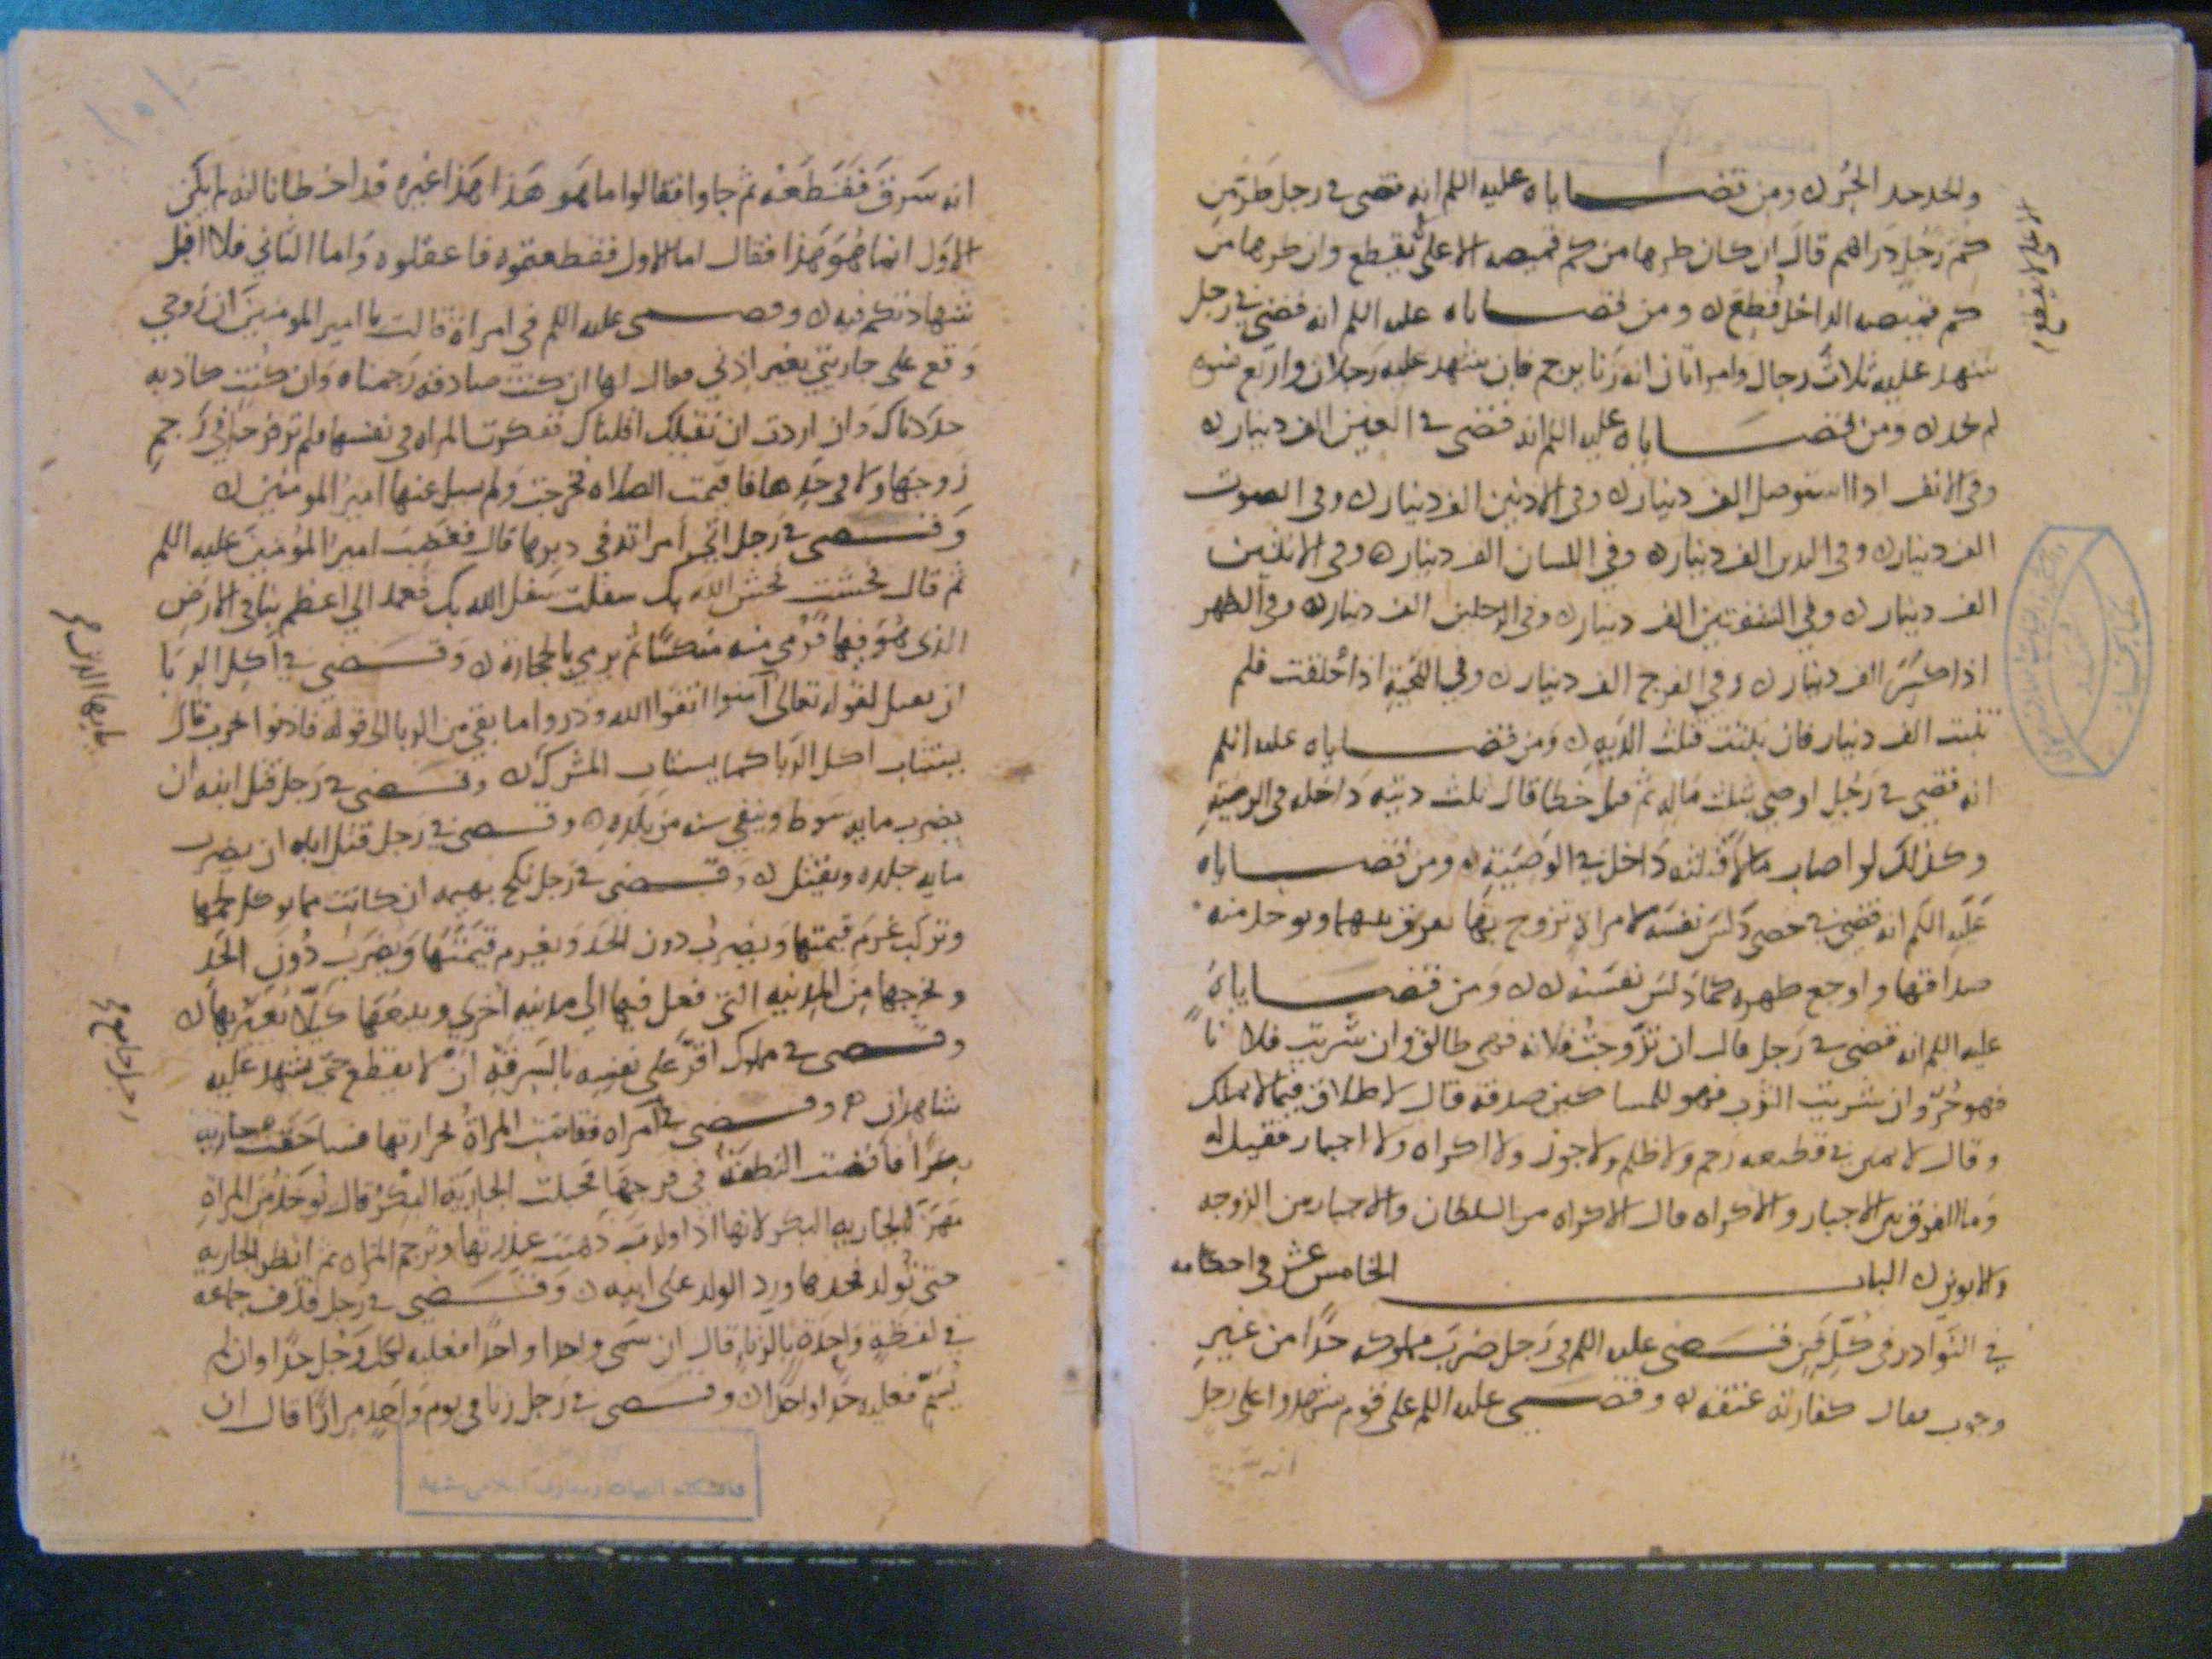 ويحد حد الحر ومن قضاياه عليه السلم انه قضى في رجل طر من
كم رجل دراهم قال ان كان طرها من كم قميصه الاعلى لم يقطع وان طرها من
كم قميصه الداخل قطع ومن قضاياه عليه السلم انه قضى في رجل
شهد عليه ثلاث رجال وامراتان انه زنا يرجم فان شهد عليه رجلان واربع نسوه
لم يحد ومن قضاياه عليه السلم انه قضى في العين الف دينار
وفي الانف اذا استوصل الف دينار وفي الاذنين الف دينار وفي الصوت
الف دينار وفي اليدين الف دينار وفي اللسان الف دينار وفي الانثيين
الف دينار وفي الشفوتين الف دينار وفي الرجلين الف دينار وفي الظهر
اذا كسر الف دينار وفي الفرج الف دينار وفي اللحية اذا حلقت فلم
تنبت الف دينار فان نبتت فثلث الديه ومن قضاياه عليه السلم
انه قضى في رجل اوصى بثلث ماله ثم قتل خطا قال ثلث ديته داخله في الوصية
وكذلك لو اصاب مالا فثلثه داخل في الوصية ومن قضاياه
عليه السلم انه قضى في خصي دلس نفسه لامراة تزوج بها يفرق بينهما ويوخذ منه
صداقها و اوجع ظهره كما دلس نفسه ومن قضاياه
عليه السلم انه قضى في رجل قال ان تزوجت فلانه فهي طالق وان شريت فلانا
فهو حر وان شريت الثوب فهو للمساكين صدقه قال لا طلاق فيما لا يملك
وقال لا يمين في قطيعه رحم ولا ظلم ولا جور ولا اكراه ولا اجبار فقيل له
وما الفرق بين الاجبار والاكراه قال الاكراه من السلطان والاجبار من الزوجه
والابوين الباب الخامس عشر في احكامه
في النوادر في كل فن قضى عليه السلم في رجل ضرب مملوكه حدا من غير
وجوب فقال كفارته عتقه وقضى عليه السلم على قوم شهدوا على رجل
انه سرق
انه سرق فقطعه ثم جاوا فقالوا ما هو هذا هذا غيره قد اخطانا لانه لم يكن
الاول انما هو هذا فقال اما الاول فقطعتموه فاعقلوه واما الثاني فلا اقبل
شهادتكم فيه وقضى عليه السلم في امراة قالت يا امير المومنين ان زوجي
وقع على جاريتي بغير اذني فقال لها ان كنت صادقه رجمناه وان كنت كاذبه
حددناك وان اردت ان نقيلك اقلناك ففكرت المراه في نفسها فلم تر فرحا في رجم
زوجها ولا في حدها فاقيمت الصلاه فخرجت ولم يسل عنها امير المومنين
وقضى في رجل اتى امراته في دبرها قال فغضب امير المؤمنين عليه السلم
ثم قال فحشت فحش الله بك سفلت سفل الله بك فعمد الى اعظم بنا في الارض
الذي هو فيها فرمي منه منكسا ثم يرمى بالحجارة وقضى في اكل الربا
ان يقتل لقوله تعالى آمنوا اتقوا الله وذروا ما بقي من الربا الى قوله فاذنوا بحرب قال
يستتاب اكل الربا كما يستتاب المشرك وقضى في رجل قتل ابنه ان
يضرب مايه سوط وينفى سنه من بلده وقضى في رجل قتل اباه ان يضرب
مايه جلده ويقتل وقضى في رجل نكح بهيمه ان كانت مما يوكل لحمها
وتركب غرم قيمتها ويضرب دون الحد ويغرم قيمتها ويضرب دون الحد
ويخرجها من المدينه التي فعل فيها الى مدينه اخرى ويبيعها كيلا يعير بها
وقضى في مملوك اقر على نفسه بالسرقه ان لا يقطع حتى يشهد عليه
شاهدان وقضى في امراه فقامت المراة بحرارتها فساحقت جاريه
بكرا فافضت النطفة في فرجها فحبلت الجارية البكر قال توخذ من المراة
مهر الجاريه البكر لانها اذا ولدت ذهبت عذرتها وترجم المراه ثم انظر الجاريه
حتى تولد فحدها ورد الولد على ابيه وقضى في رجل قذف جماعه
في لفظة واحدة بالزنا قال ان سمى واحدا واحدا فعليه لكل رجل حدا وان لم
يسم فعليه حدا واحدا وقضى في رجل زنا في يوم واحد مرارا قال ان